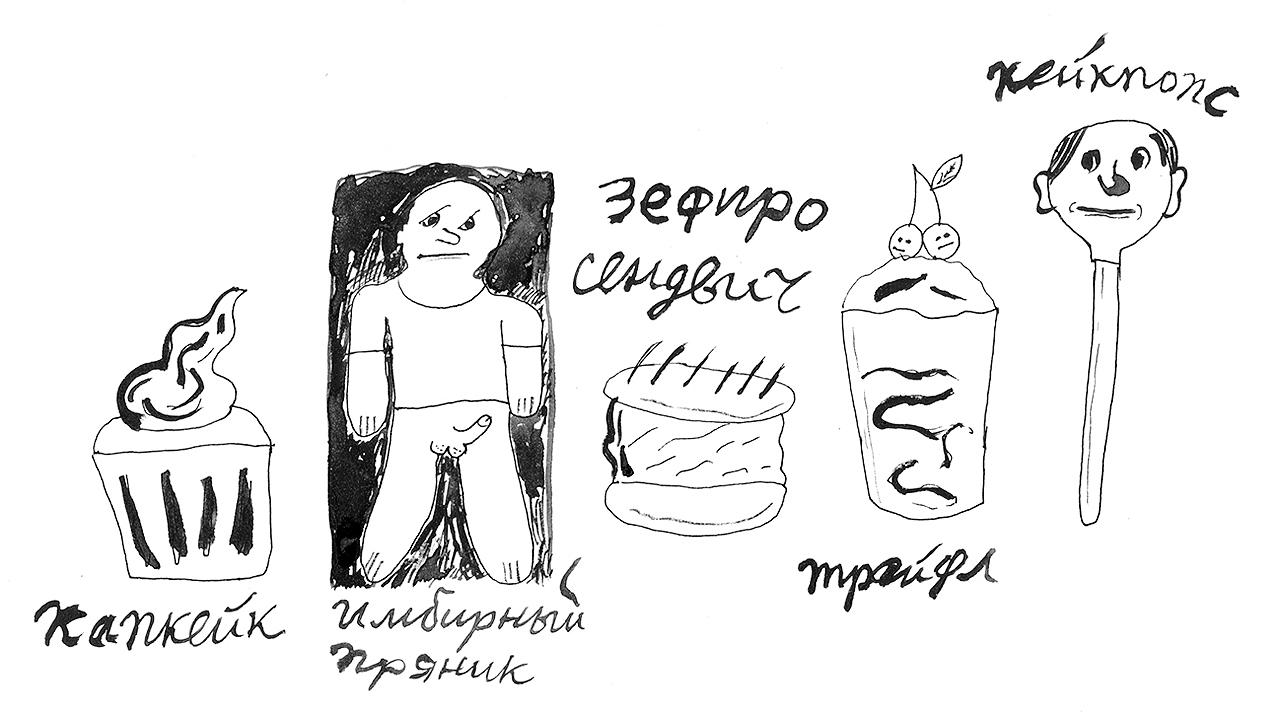 капкейк
имбирный
пряник
зефиро
сендвич
трайфл
кейкпопс